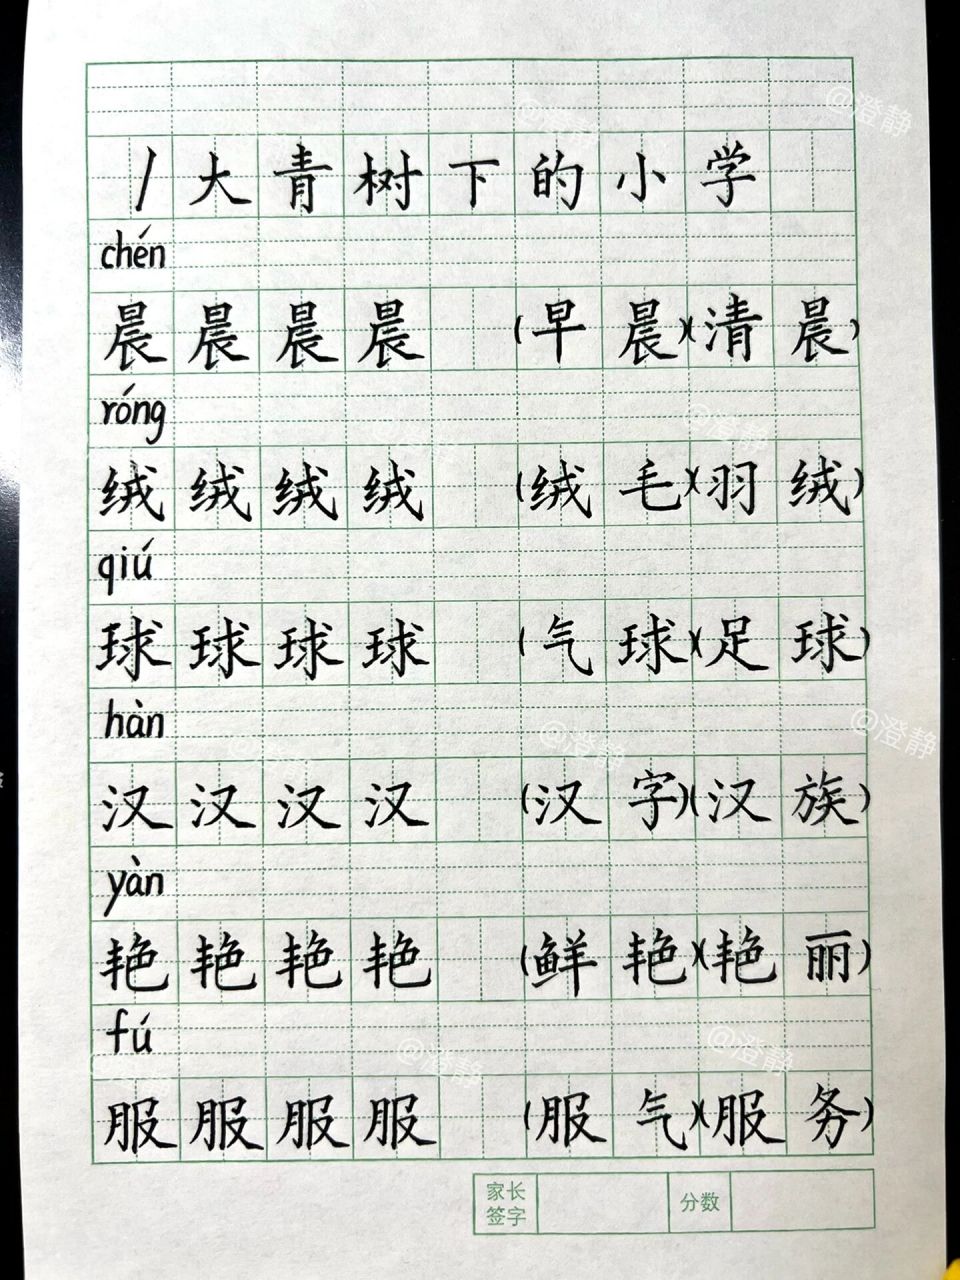 1 大青树下的小学
chén
晨 晨 晨 晨 (早晨)(清晨)
róng
绒 绒 绒 绒 (绒毛)(羽绒)
qiú
球 球 球 球 (气球)(足球)
hàn
汉 汉 汉 汉 (汉字)(汉族)
yàn
艳 艳 艳 艳 (鲜艳)(艳丽)
fú
服 服 服 服 (服气)(服务)
家长签字 分数
@澄静
@澄静
@澄静
@澄静
@澄静
@澄静
@澄静
@澄静